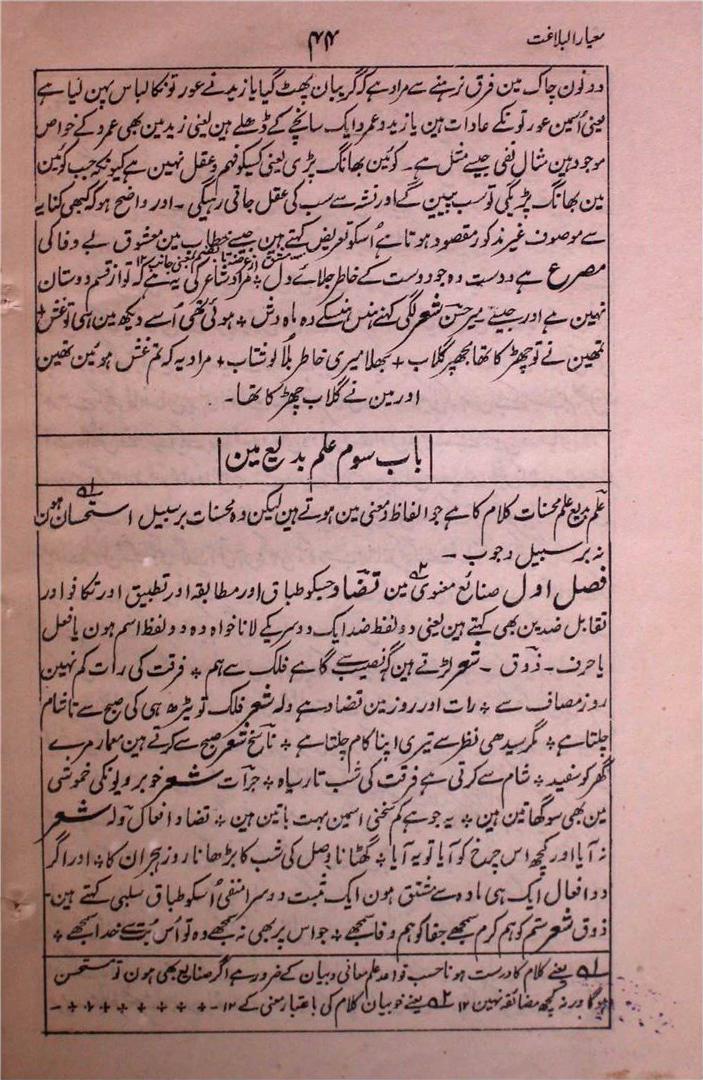 معیار البلاغت
۴۴
دونون چاک مین فرق نرہنے سے مراد ہے کہ گریبان پھٹ گیا یا زید نے عورتونکا لباس پہن لیا ہے
یعنی اُسمین عورتونکے عادات ہین یا زید و عمرد ایک سانچے کے ڈھلے ہین یعنی زید مین بھی عمرد کے خواص
موجود ہین مثال نفی جیسے مثل ہے۔ کوئین بھانگ پڑی یعنی کسیکو فہم و عقل نہین ہے کیونکہ جب کوئین
مین بھانگ پڑیگی تو سب پیین گے اور نشہ سے سب کی عقل جاتی رہیگی ۔ اور واضح ہو کہ کبھی کنایہ
سے موصوف غیر مذکور مقصود ہوتا ہے اُسکو تعریض کہتے ہین جیسے خطاب مین معشوق بے وفا کی
مصرع ہے دوست وہ جو دوست کے خاطر جلائے دل ٭ مراد شاعر کی یہ ہے کہ تو از قسم دوستان
نہین ہے اور جیسے میر حسن شعر لگی کہنے ہنس ہنسکے وہ ماہ وش ٭ ہوئی تھی اُسے دیکھ مین ہی تو غش ٭
تمھین نے تو چھڑکا تھا مجھپر گلاب ٭ بھلا میری خاطر بلا لو شتاب ٭ مراد یہ کہ تم غش ہوئین تھین
اور مین نے گلاب چھڑکا تھا۔
باب سوم علم بدیع مین
علم بدیع علم محسنات کلام کا ہے جو الفاظ و معنی مین ہوتے ہین لیکن وہ محسنات بر سبیل استحسان ہون ۱ه
نہ بر سبیل وجوب ۔
فصل اول صنائع معنوی ۲ه مین تضاد جسکو طباق اور مطابقہ اور تطبیق اور تکافو اور
تقابل ضدین بھی کہتے ہین یعنی دو لفظ ضد ایک دوسر یکے لانا خواہ وہ دو لفظ اسم ہون یا فعل
یا حرف ۔ ذوق ۔ شعر لڑتے ہین گہ نصیب سے گاہے فلک سے ہم ٭ فرقت کی رات کم نہین
روز مصاف سے ٭ رات اور روز مین تضاد ہے ولہ شعر فلک تو ٹیڑھ ہی کی صبح سے تا شام
چلتا ہے ٭ مگر سیدھی نظر سے تیری اپنا کام چلتا ہے ٭ ناسخ شعر صبح سے کرتے ہین معمار مرے
گھر کو سفید ٭ شام سے کرتی ہے فرقت کی شب تار سیاہ ٭ جرأت شعر خوبرویونکی خموشی
مین بھی سو گھاتین ہین ٭ یہ جو ہے کم سخنی اسمین بہت باتین ہین ٭ تضاد افعال ولہ شعر
نہ آیا اور کچھ اس چرخ کو آیا تو یہ آیا ٭ گھٹانا وصل کی شب کا بڑھانا روز ہجران کا ٭ اور اگر
دو افعال ایک ہی مادہ سے مشتق ہون ایک مثبت دوسرا منفی اُسکو طباق سلبی کہتے ہین ۔
ذوق شعر ستم کو ہم کرم سمجھے جفا کو ہم وفا سمجھے ٭ جو اس پر بھی نہ سمجھے وہ تو اُس بُت سے خدا سمجھے ٭
۱ه یعنے کلام کا درست ہونا حسب قواعد علم معانی و بیان کے ضرور ہے اگر صنایع بھی ہون تو مستحسن
ہوگا ورنہ کچھ مضائقہ نہین ۱۲ ۲ه یعنے خوبیان کلام کی باعتبار معنی کے ۱۲